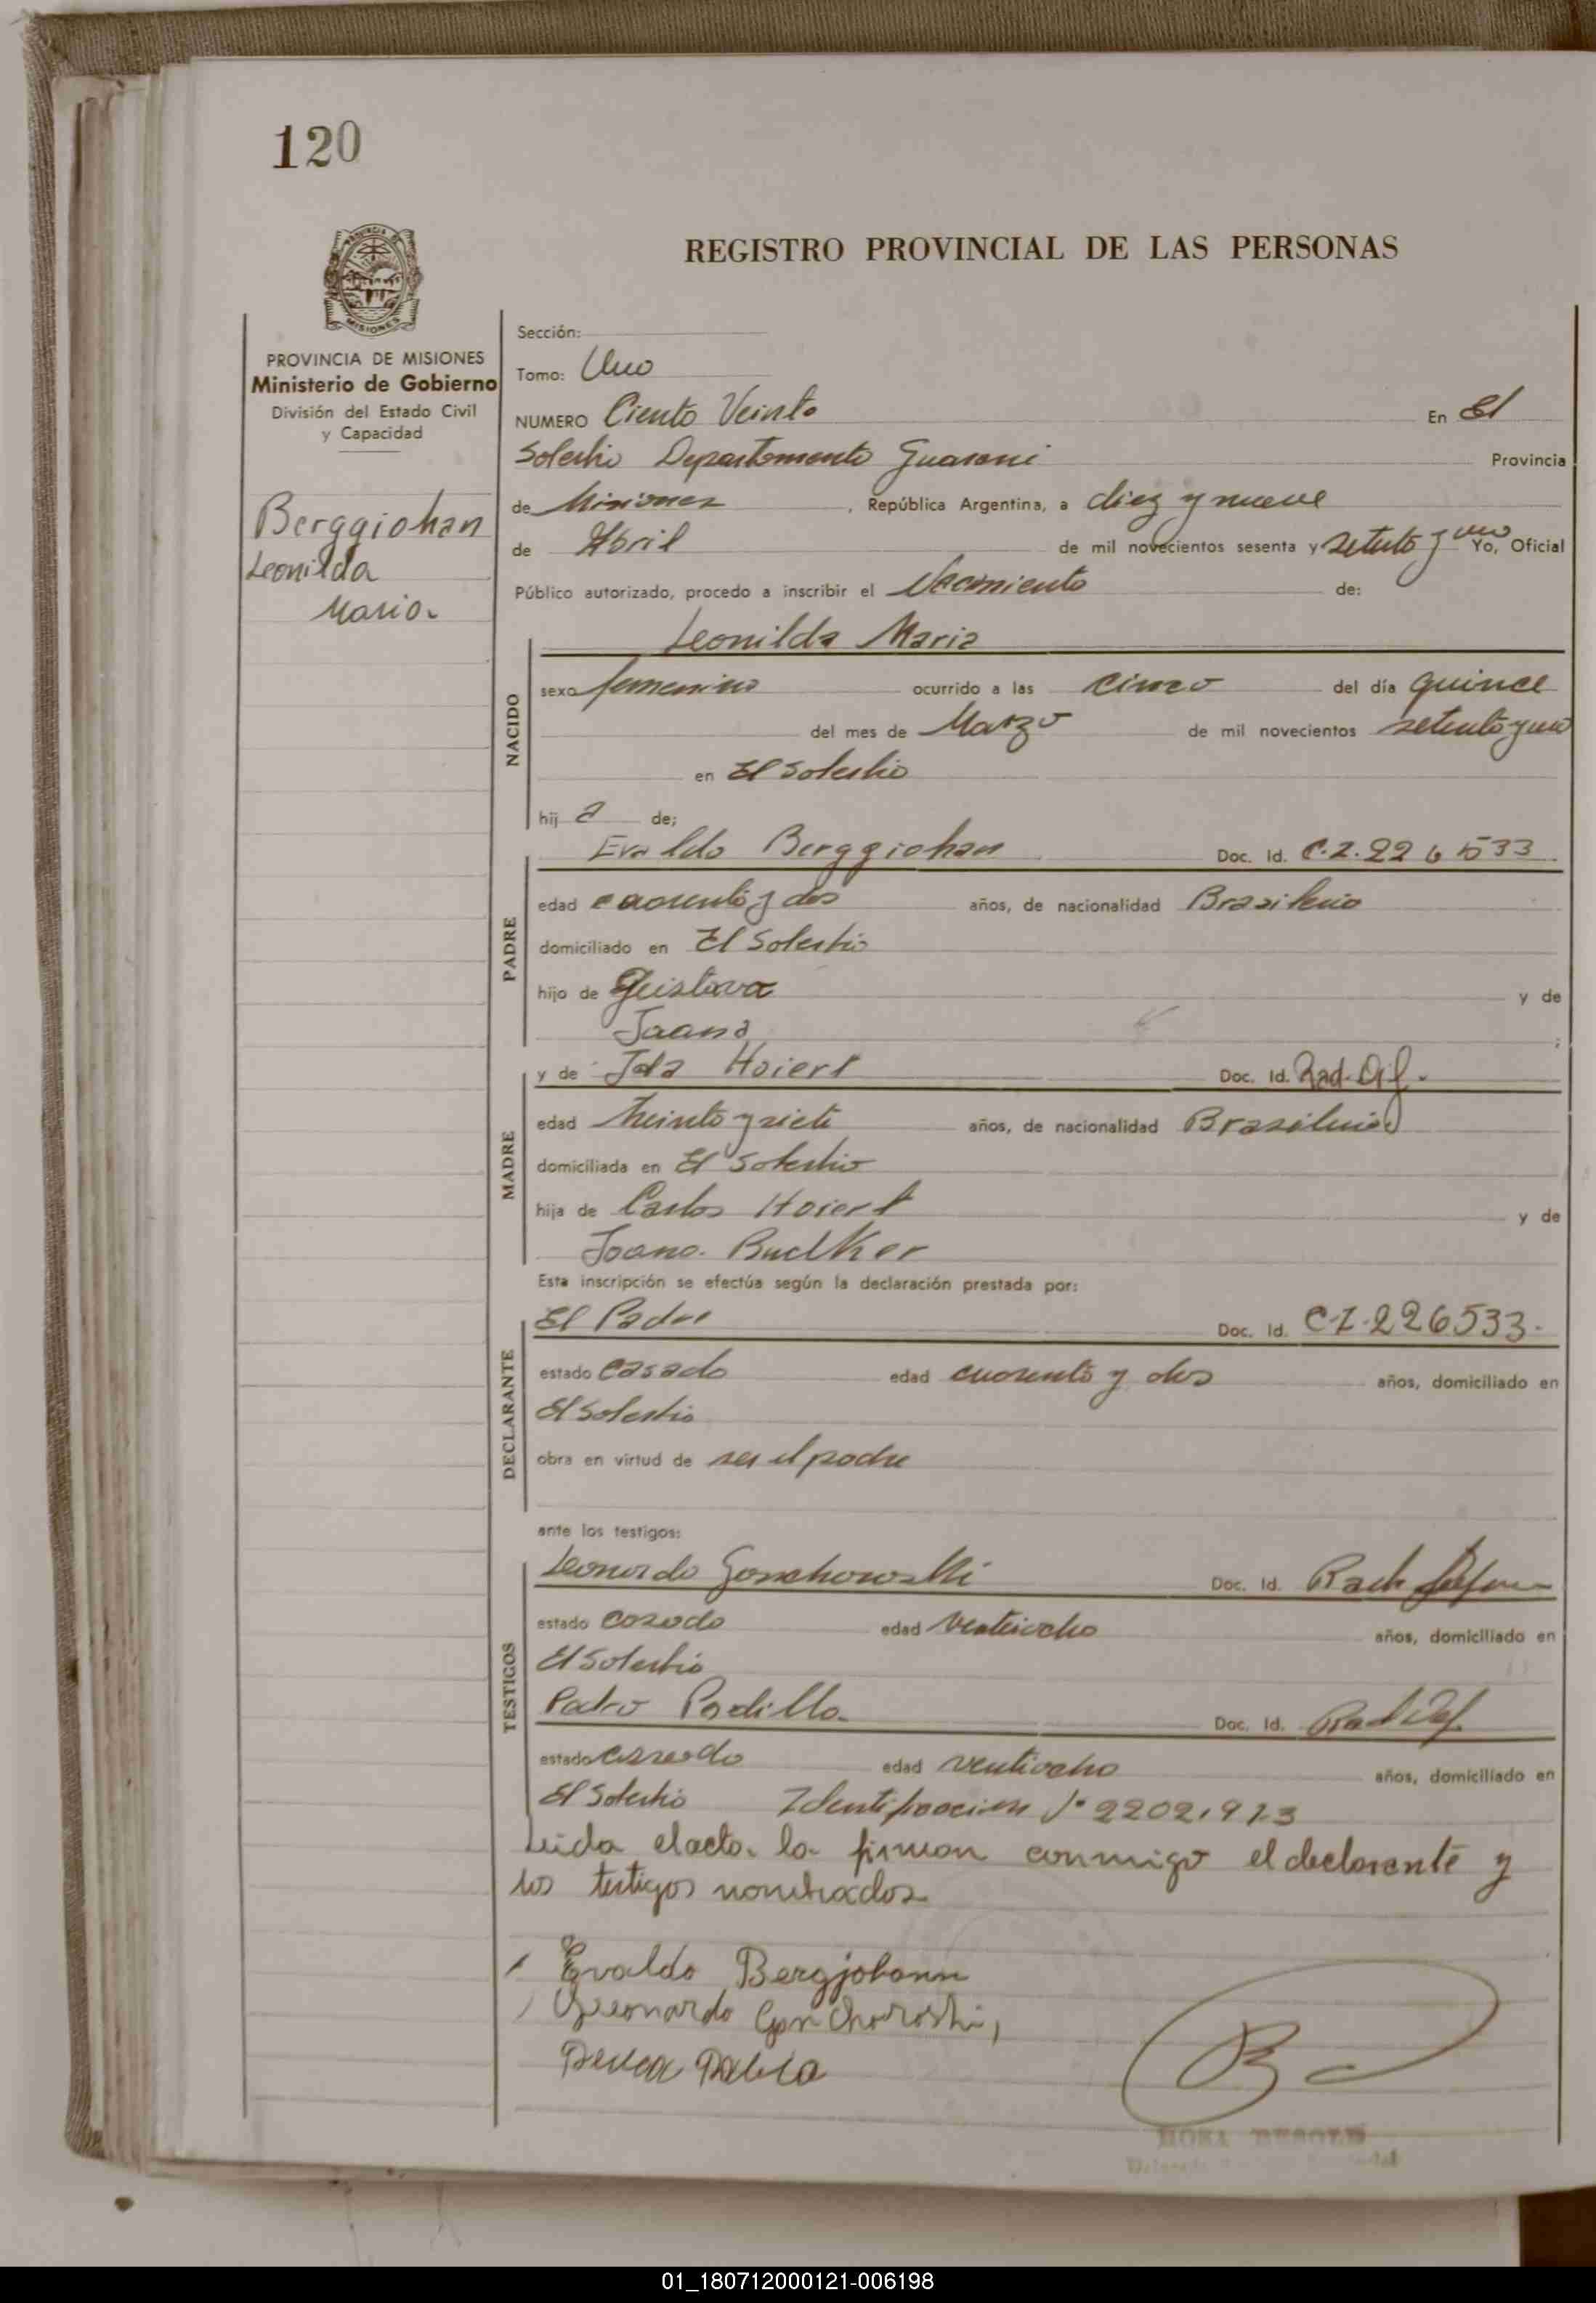 120
REGISTRO PROVINCIAL DE LAS PERSONAS
PROVINCIA DE MISIONES
Ministerio de Gobierno
División del Estado Civil
y Capacidad
Berggiohan
Leonilda
Maria
Sección:
Tomo: Uno
NUMERO Ciento Veinte En El
Soberbio Departamento Guarani Provincia
de Misiones, República Argentina, a diez y nueve
de Abril de mil novecientos sesenta y setenta y uno Yo, Oficial
Público autorizado, procedo a inscribir el Nacimiento de:
NACIDO
Leonilda Maria
sexo femenino ocurrido a las cinco del día quince
del mes de Marzo de mil novecientos setenta y uno
en El Soberbio
hij a de;
PADRE
Evaldo Berggiohan Doc. Id. C.I. 226533
edad cuarenta y dos años, de nacionalidad Brasileño
domiciliado en El Soberbio
hijo de Gustavo y de
Joana ;
MADRE
y de Ida Hoiert Doc. Id. Rad. Dif.
edad treinta y siete años, de nacionalidad Brasileña
domiciliada en El Soberbio
hija de Carlos Hoiert y de
Joana Buelker
Esta inscripción se efectúa según la declaración prestada por:
DECLARANTE
El Padre Doc. Id. C.I. 226533.
estado casado edad cuarenta y dos años, domiciliado en
El Soberbio
obra en virtud de ser el padre
ante los testigos:
TESTIGOS
Leonardo Gonchorowski Doc. Id.
estado casado edad ventiocho años, domiciliado en
El Soberbio
Pedro Padilla Doc. Id.
estado casado edad ventiocho años, domiciliado en
El Soberbio Identificacion Nº 2202.973
Leida el acta la firman conmigo el declarante y
los testigos nombrados
Evaldo Bergjohann
Leonardo Gonchoroski,
B
01_180712000121-006198